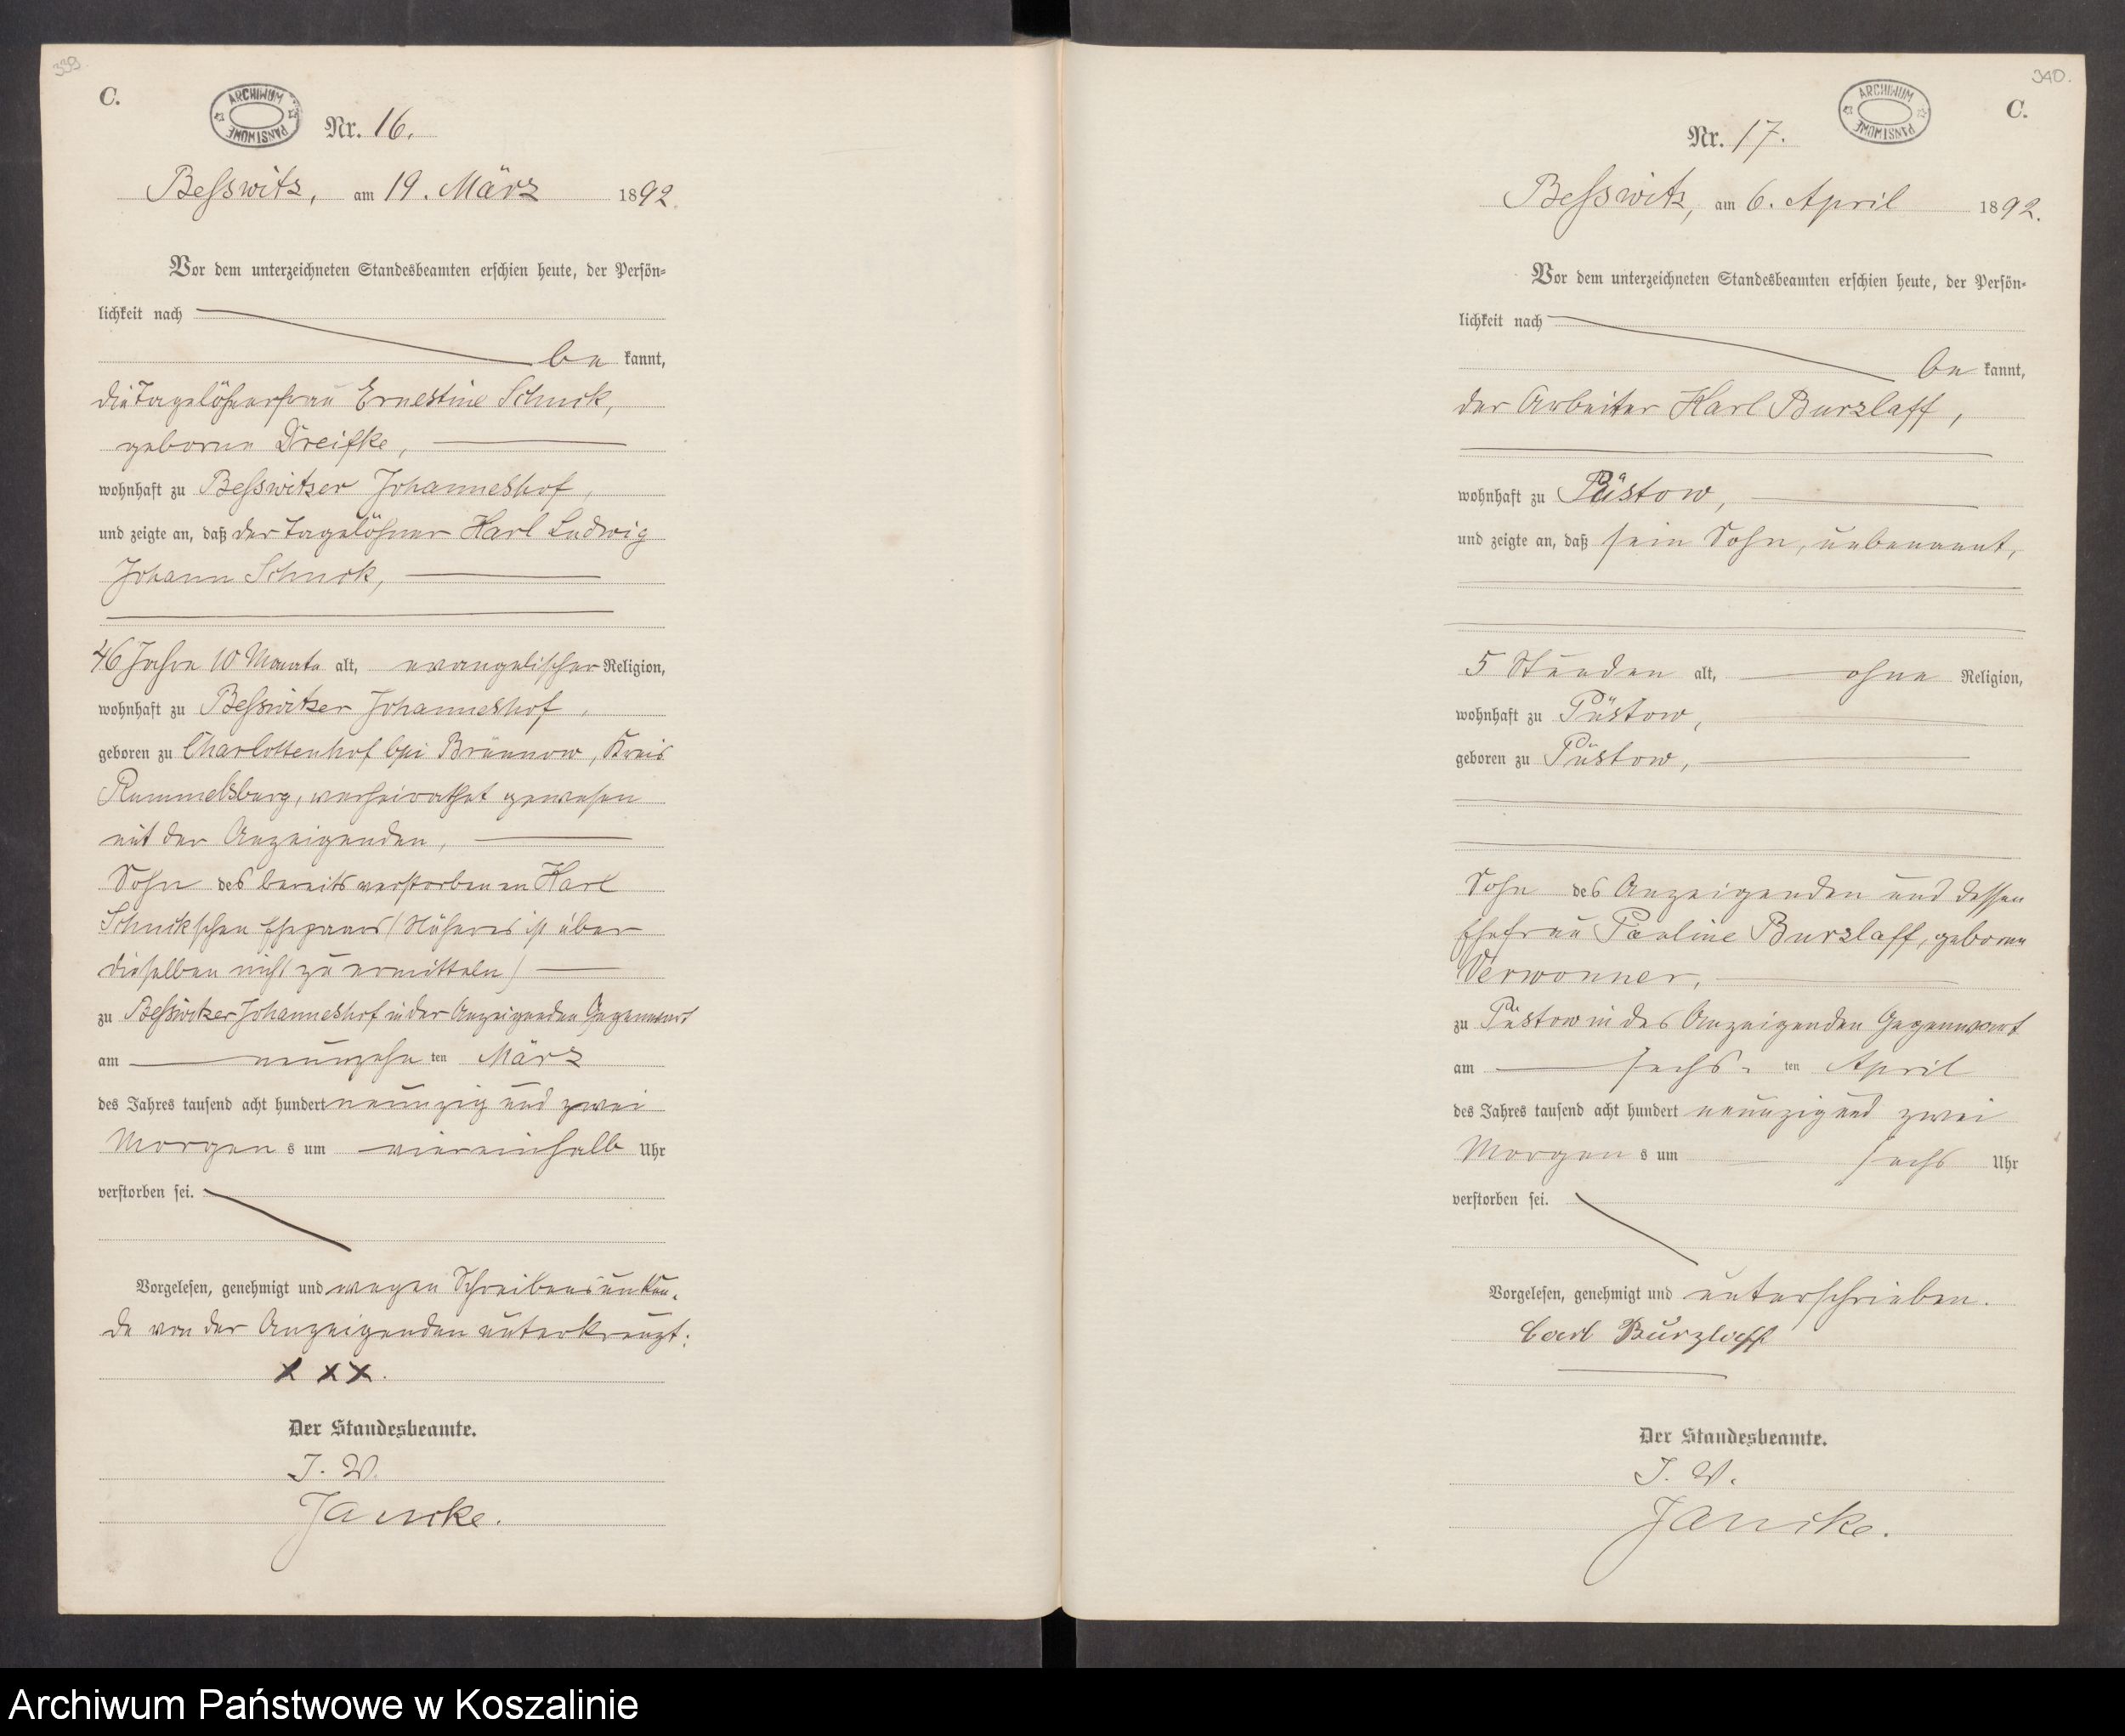 339.
C.
ARCHIWUM PAŃSTWOWE
Nr. 16.
Beſswitz, am 19. März 1892.
Vor dem unterzeichneten Standesbeamten erschien heute, der Persön-
lichkeit nach
be kannt,
die Tagelöhnerfrau Ernestine Schuck,
geborne Dreifke,
wohnhaft zu Beſswitzer Johanneshof,
und zeigte an, daß der Tagelöhner Karl Ludwig
Johann Schuck,
46 Jahre 10 Monate alt, evangelischer Religion,
wohnhaft zu Beſswitzer Johanneshof,
geboren zu Charlottenhof bei Brünnow, Kreis
Rummelsburg, verheirathet gewesen
mit der Anzeigenden,
Sohn des bereits verstorbenen Karl
Schuckschen Ehepaars (Näheres ist über
dieselben nicht zu ermitteln)
zu Beſswitzer Johanneshof in der Anzeigenden Gegenwart
am neunzehn ten März
des Jahres tausend acht hundert neunzig und zwei
Morgen s um viereinhalb Uhr
verstorben sei.
Vorgelesen, genehmigt und wegen Schreibensunkun-
de von der Anzeigenden unterkreuzt:
x x x.
Der Standesbeamte.
J. V.
Jancke.
340.
C.
ARCHIWUM PAŃSTWOWE
Nr. 17.
Beſswitz, am 6. April 1892.
Vor dem unterzeichneten Standesbeamten erschien heute, der Persön-
lichkeit nach
be kannt,
der Arbeiter Karl Burzlaff,
wohnhaft zu Püstow,
und zeigte an, daß sein Sohn, unbenannt,
5 Stunden alt, ohne Religion,
wohnhaft zu Püstow,
geboren zu Püstow,
Sohn des Anzeigenden und dessen
Ehefrau Pauline Burzlaff, geborne
Verwonner,
zu Püstow in des Anzeigenden Gegenwart
am sechs- ten April
des Jahres tausend acht hundert neunzig und zwei
Morgen s um sechs Uhr
verstorben sei.
Vorgelesen, genehmigt und unterschrieben.
Carl Burzlaff
Der Standesbeamte.
J. V.
Jancke.
Archiwum Państwowe w Koszalinie